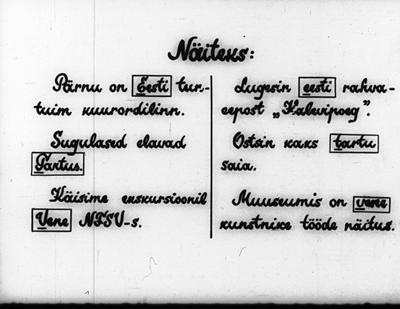 Näiteks:
Pärnu on Eesti tun-
tuim kuurordilinn.
Sugulased elavad
Tartus.
Käisime ekskursioonil
Vene NFSV-s.
Lugesin eesti rahva-
eepost „Kalevipoeg".
Ostsin kaks tartu
saia.
Muuseumis on vene
kunstnike tööde näitus.